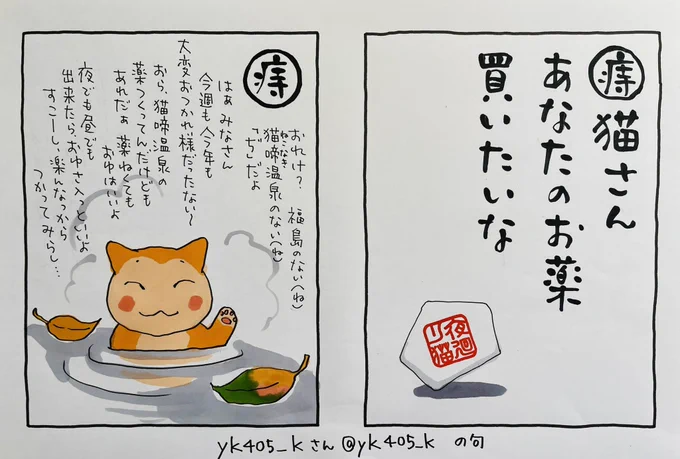 痔猫さん
あなたのお薬
買いたいな
夜廻り猫
痔
おれけ? 福島のない(ね)
猫啼温泉のない(ね)
ねこなき
“ぢ”だよ
はぁ みなさん
今週も今年も
大変おつかれ様だったない〜
おら、猫啼温泉の
薬つくってんだけども
あれだぁ 薬ねくても
おゆはいいよ
夜でも昼でも
出来たら、おゆさ入っといよ
すこーし、楽んなっから
つかってみらし…
yk405_kさん @yk405_k の句